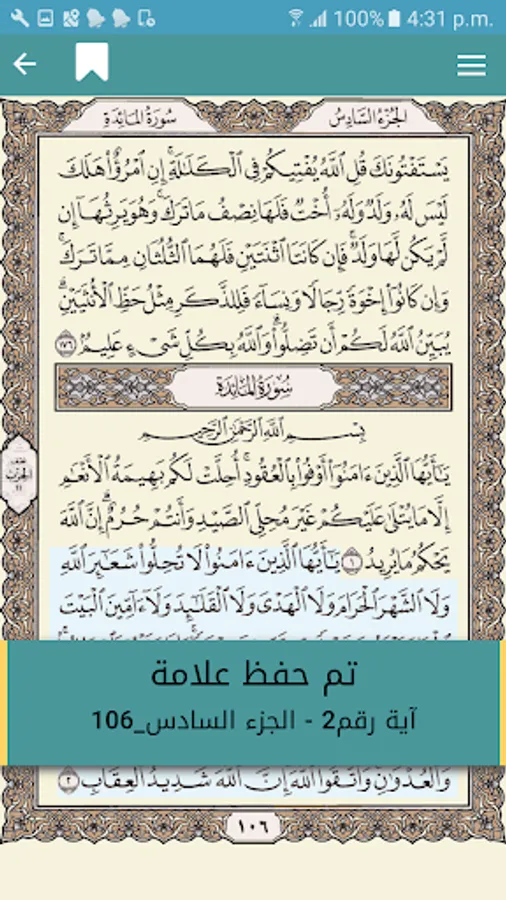 100% 4:31 p.m.
سورة المائدة الجزء السادس
يَسْتَفْتُونَكَ قُلِ اللَّهُ يُفْتِيكُمْ فِي الْكَلَالَةِ إِنِ امْرُؤٌا هَلَكَ
لَيْسَ لَهُ وَلَدٌ وَلَهُ أُخْتٌ فَلَهَا نِصْفُ مَا تَرَكَ وَهُوَ يَرِثُهَا إِن
لَّمْ يَكُن لَّهَا وَلَدٌ فَإِن كَانَتَا اثْنَتَيْنِ فَلَهُمَا الثُّلُثَانِ مِمَّا تَرَكَ
وَإِن كَانُوا إِخْوَةً رِّجَالًا وَنِسَاءً فَلِلذَّكَرِ مِثْلُ حَظِّ الْأُنثَيَيْنِ
يُبَيِّنُ اللَّهُ لَكُمْ أَن تَضِلُّوا وَاللَّهُ بِكُلِّ شَيْءٍ عَلِيمٌ ١٧٦
سُورَةُ الْمَائِدَةِ
بِسْمِ اللَّهِ الرَّحْمَٰنِ الرَّحِيمِ
يَا أَيُّهَا الَّذِينَ ءَامَنُوا أَوْفُوا بِالْعُقُودِ أُحِلَّتْ لَكُم بَهِيمَةُ الْأَنْعَامِ
إِلَّا مَا يُتْلَىٰ عَلَيْكُمْ غَيْرَ مُحِلِّي الصَّيْدِ وَأَنتُمْ حُرُمٌ إِنَّ اللَّهَ
يَحْكُمُ مَا يُرِيدُ ١ يَا أَيُّهَا الَّذِينَ ءَامَنُوا لَا تُحِلُّوا شَعَائِرَ اللَّهِ
وَلَا الشَّهْرَ الْحَرَامَ وَلَا الْهَدْيَ وَلَا الْقَلَائِدَ وَلَا ءَامِّينَ الْبَيْتَ
تم حفظ علامة
آية رقم2 - الجزء السادس_106
وَالْعُدْوَانِ وَاتَّقُوا اللَّهَ إِنَّ اللَّهَ شَدِيدُ الْعِقَابِ ٢
١٠٦